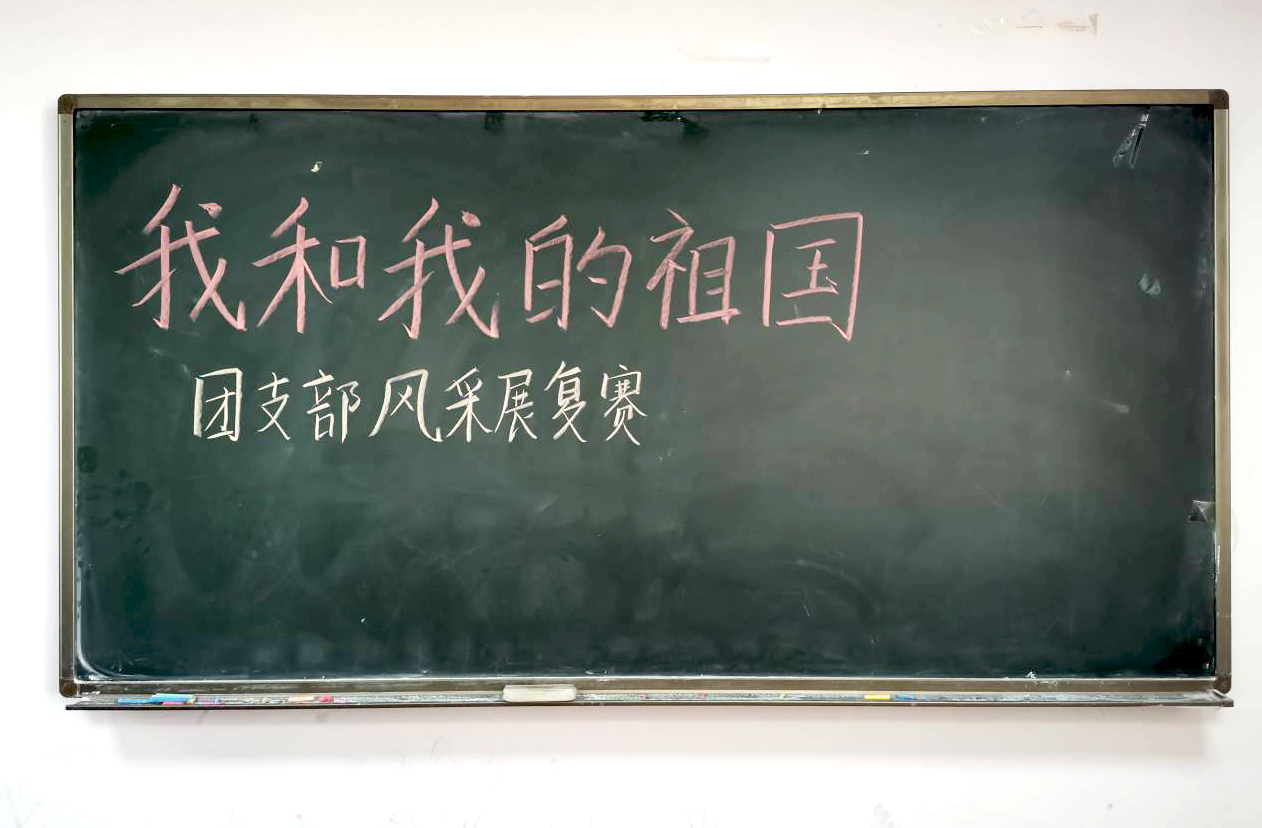 我和我的祖国
团支部风采展复赛